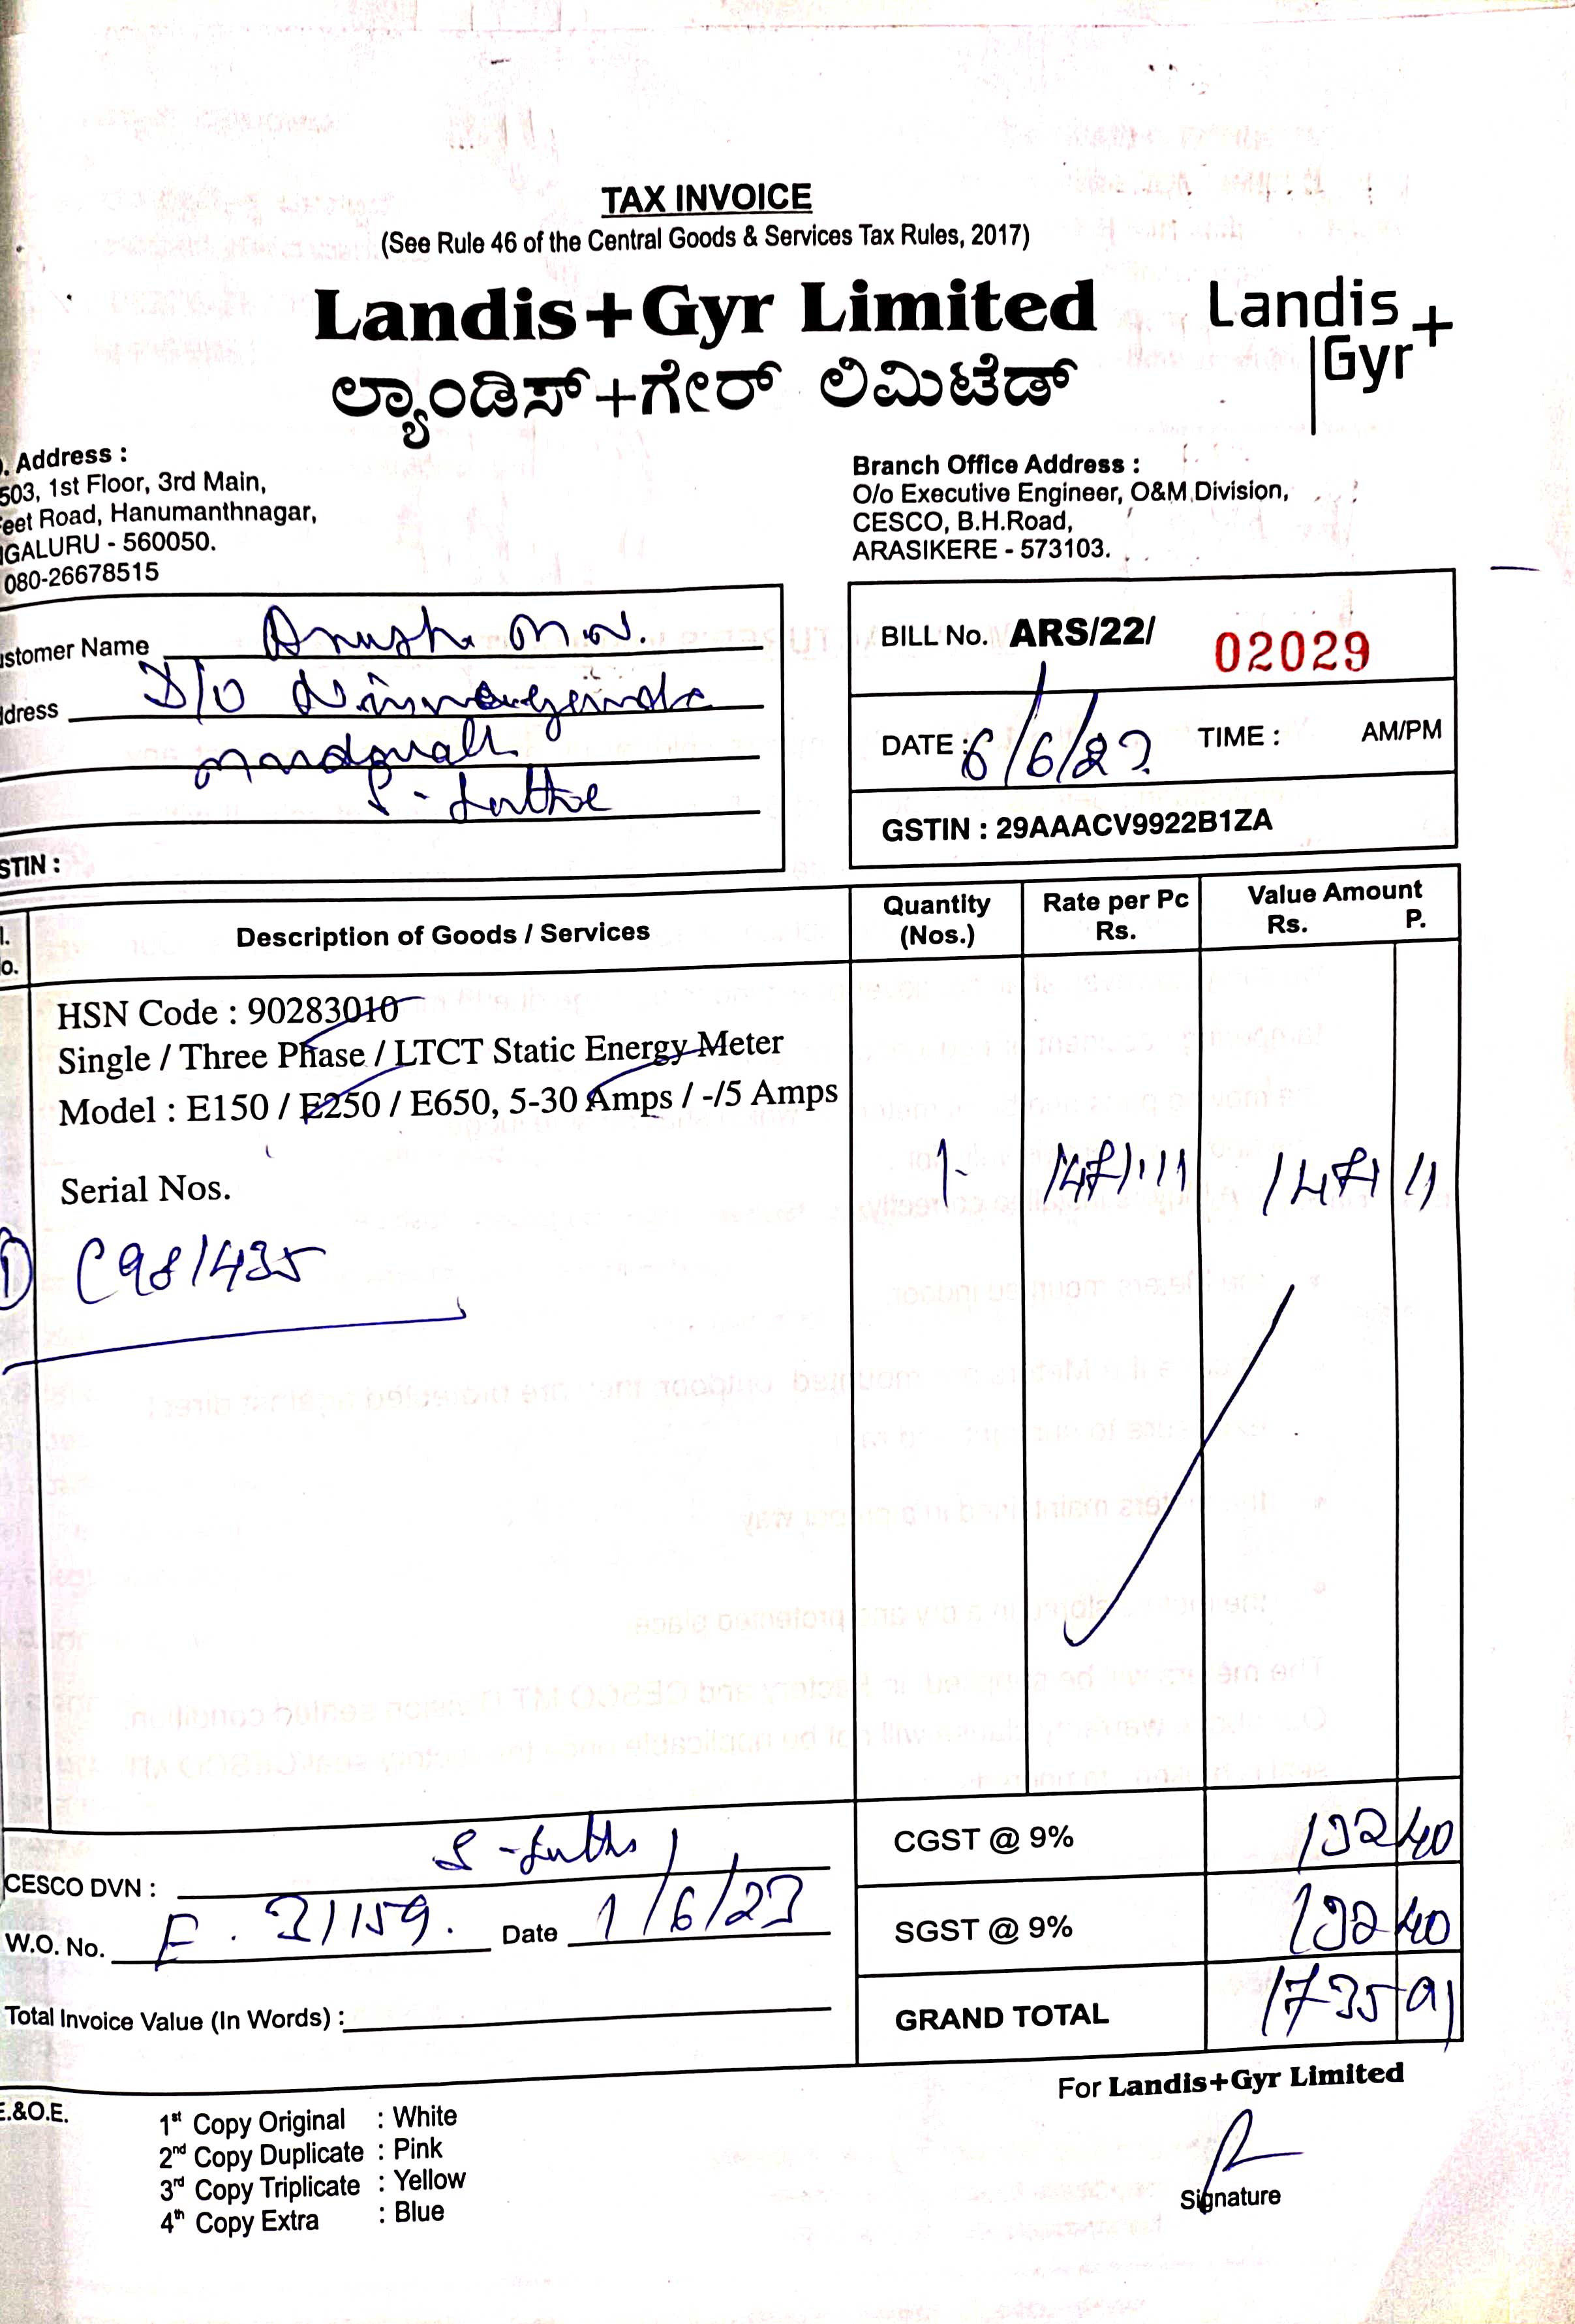 TAX INVOICE
(See Rule 46 of the Central Goods & Services Tax Rules, 2017)
Landis+Gyr Limited
ಲ್ಯಾಂಡಿಸ್+ಗೇರ್ ಲಿಮಿಟೆಡ್
Landis
Gyr+
. Address :
503, 1st Floor, 3rd Main,
eet Road, Hanumanthnagar,
GALURU - 560050.
080-26678515
Branch Office Address :
O/o Executive Engineer, O&M Division,
CESCO, B.H.Road,
ARASIKERE - 573103.
stomer Name Anusha M.N.
dress D/O
STIN :
BILL No. ARS/22/ 02029
DATE : 6/6/23 TIME : AM/PM
GSTIN : 29AAACV9922B1ZA
Description of Goods / Services
Quantity (Nos.)
Rate per Pc Rs.
Value Amount
Rs. P.
HSN Code : 90283010
Single / Three Phase / LTCT Static Energy Meter
Model : E150 / E250 / E650, 5-30 Amps / -/5 Amps
Serial Nos. 1 1471.11 1471 11
1 C981435
CESCO DVN :
W.O. No. Date 1/6/23
Total Invoice Value (In Words) :
CGST @ 9% 132 40
SGST @ 9% 132 40
GRAND TOTAL 1735 91
For Landis+Gyr Limited
Signature
E.&O.E.
1st Copy Original : White
2nd Copy Duplicate : Pink
3rd Copy Triplicate : Yellow
4th Copy Extra : Blue